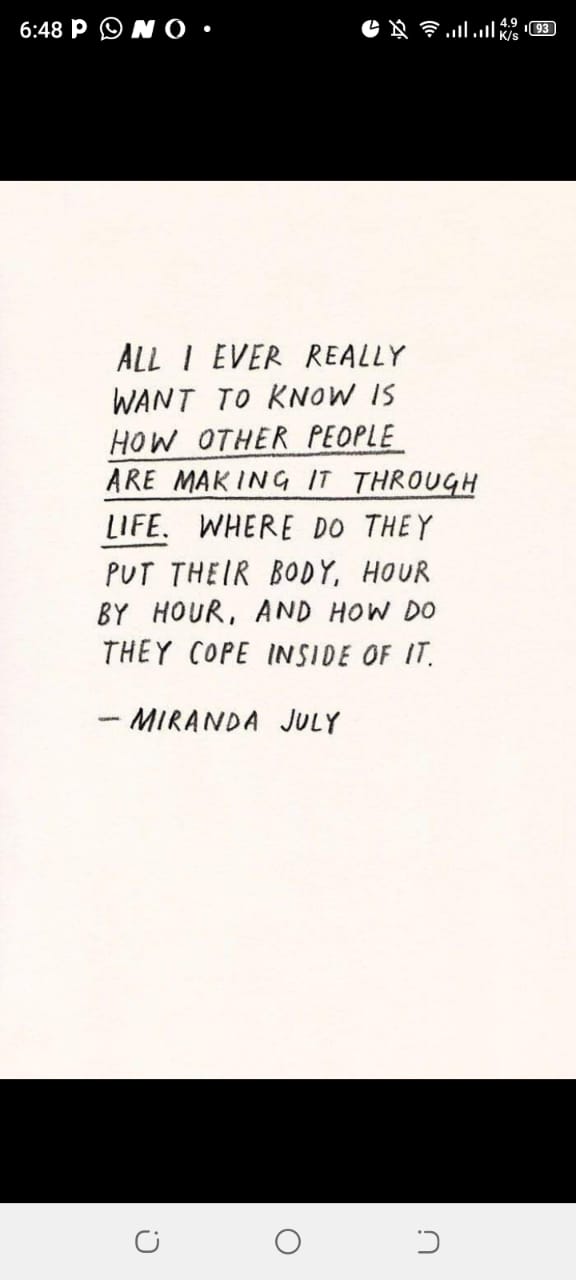 6:48 P N O
4.9
K/s 93
ALL I EVER REALLY
WANT TO KNOW IS
HOW OTHER PEOPLE
ARE MAKING IT THROUGH
LIFE. WHERE DO THEY
PUT THEIR BODY, HOUR
BY HOUR, AND HOW DO
THEY COPE INSIDE OF IT.
— MIRANDA JULY